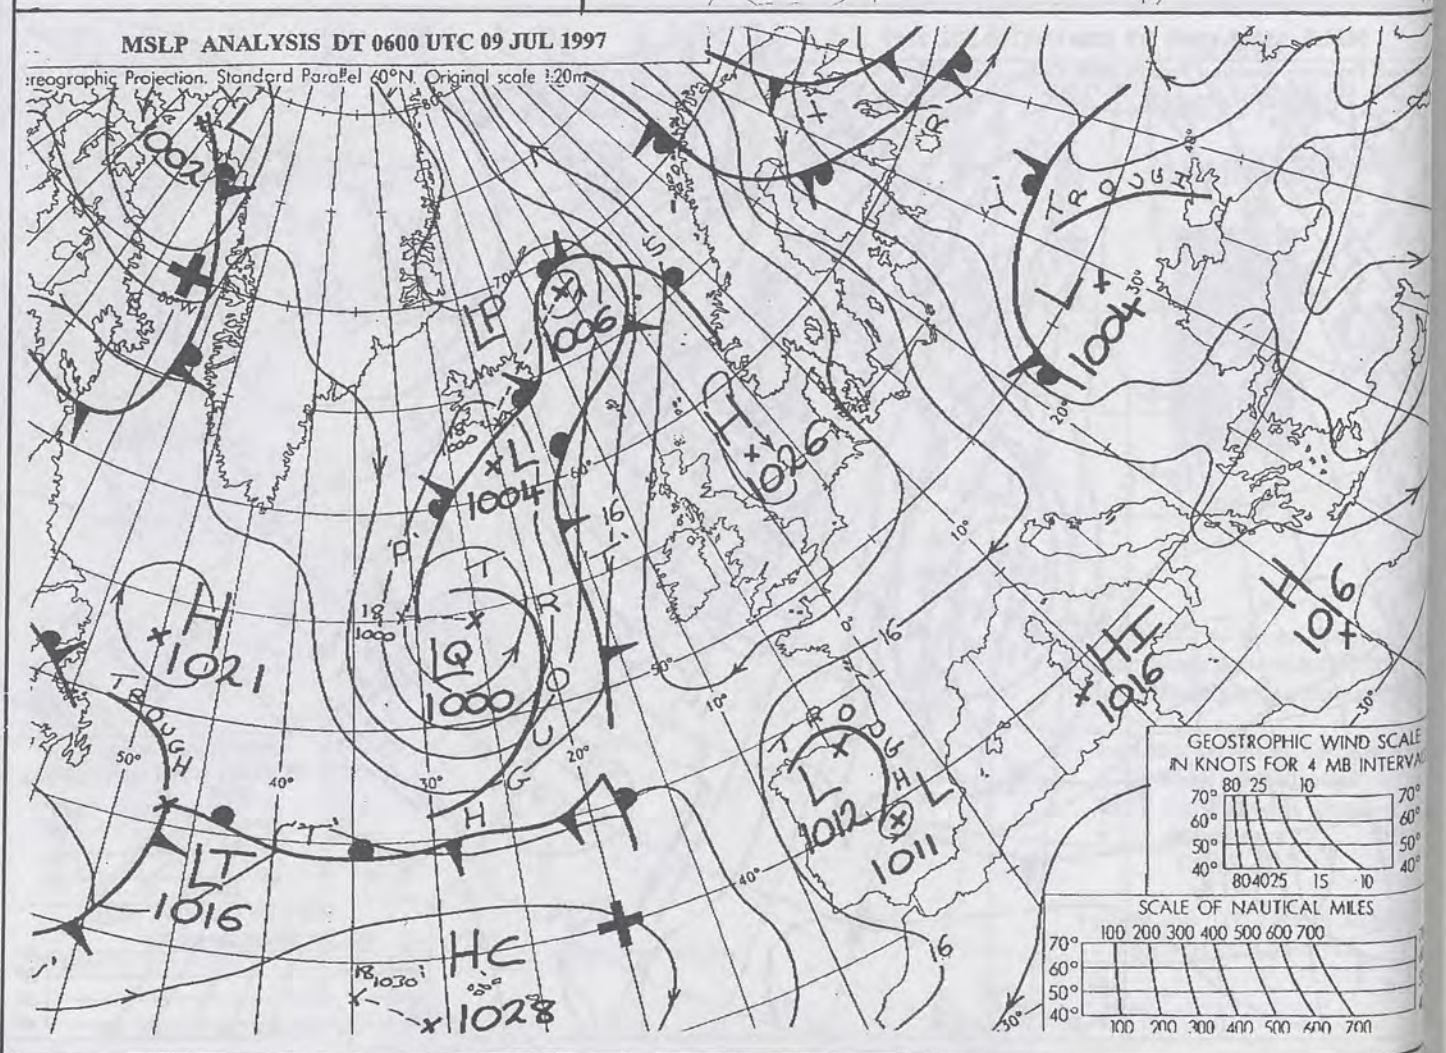 MSLP ANALYSIS DT 0600 UTC 09 JUL 1997
reographic Projection. Standard Parallel 60°N. Original scale 1:20m
L
1002
80°
60°W
70°
S
R
Y'
TROUGH
40°
L
1004
30°
20°
LP
1006
H
1026
L
1004
60°
16
'P'
T
R
O
U
G
H
18
1000
LQ
1000
50°
10°
0°
16
10°
H
1021
TROUGH
50°
40°
30°
20°
H
1016
HI
1016
30°
TROUGH
L
1012
L
1011
40°
T
LT
1016
HC
1028
18
1030
16
30°
GEOSTROPHIC WIND SCALE
IN KNOTS FOR 4 MB INTERVA
80 25 10
70° 70°
60° 60°
50° 50°
40° 40°
80 40 25 15 10
SCALE OF NAUTICAL MILES
100 200 300 400 500 600 700
70°
60°
50°
40°
100 200 300 400 500 600 700